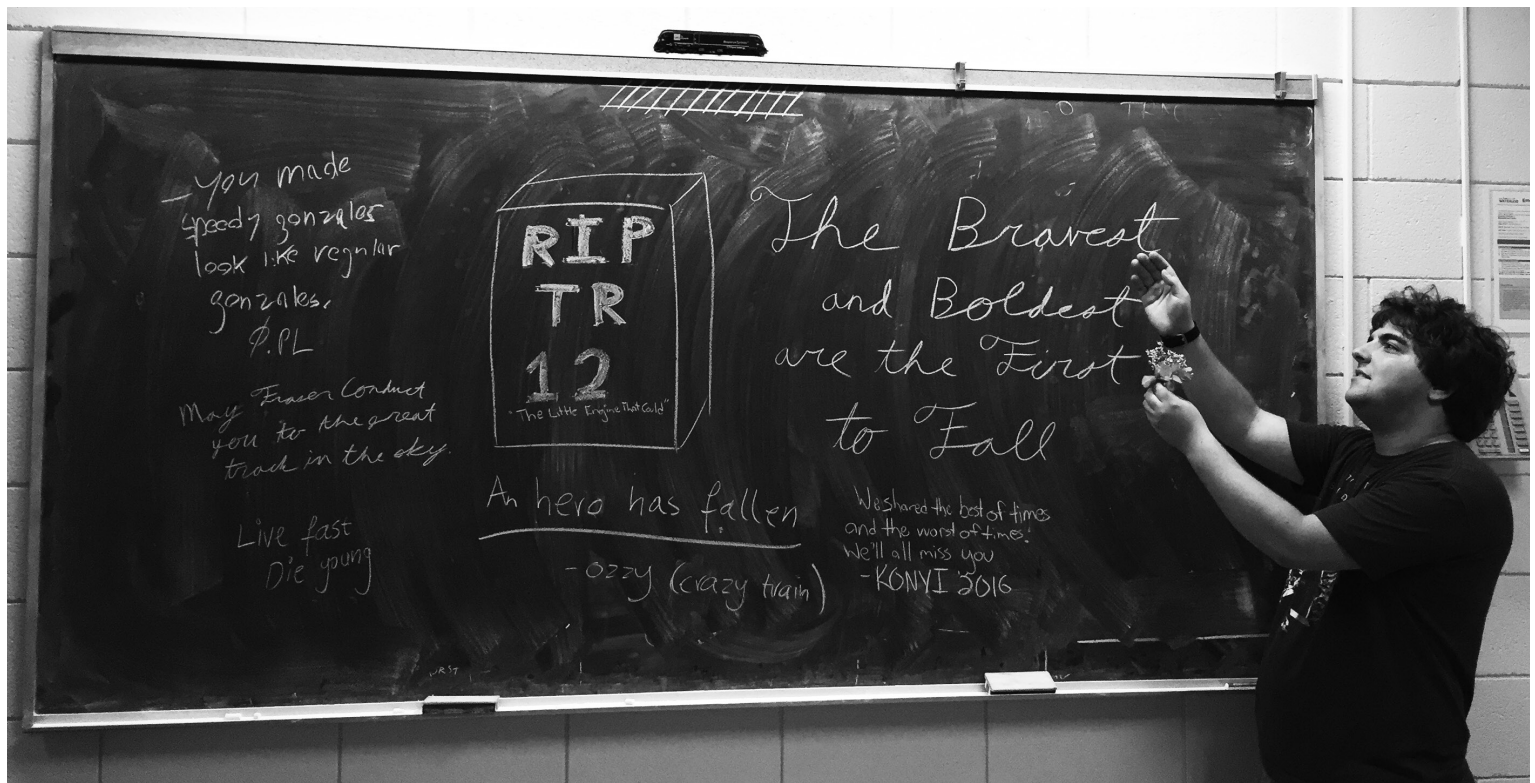 You made
speedy gonzales
look like regular
gonzales.
P.PL
May Fraser Conduct
you to the great
track in the sky.
Live fast
Die young
RIP
TR
12
"The Little Engine That Could"
An hero has fallen
- Ozzy (crazy train)
The Bravest
and Boldest
are the First
to Fall
We shared the best of times
and the worst of times.
We'll all miss you
- KONYI 2016